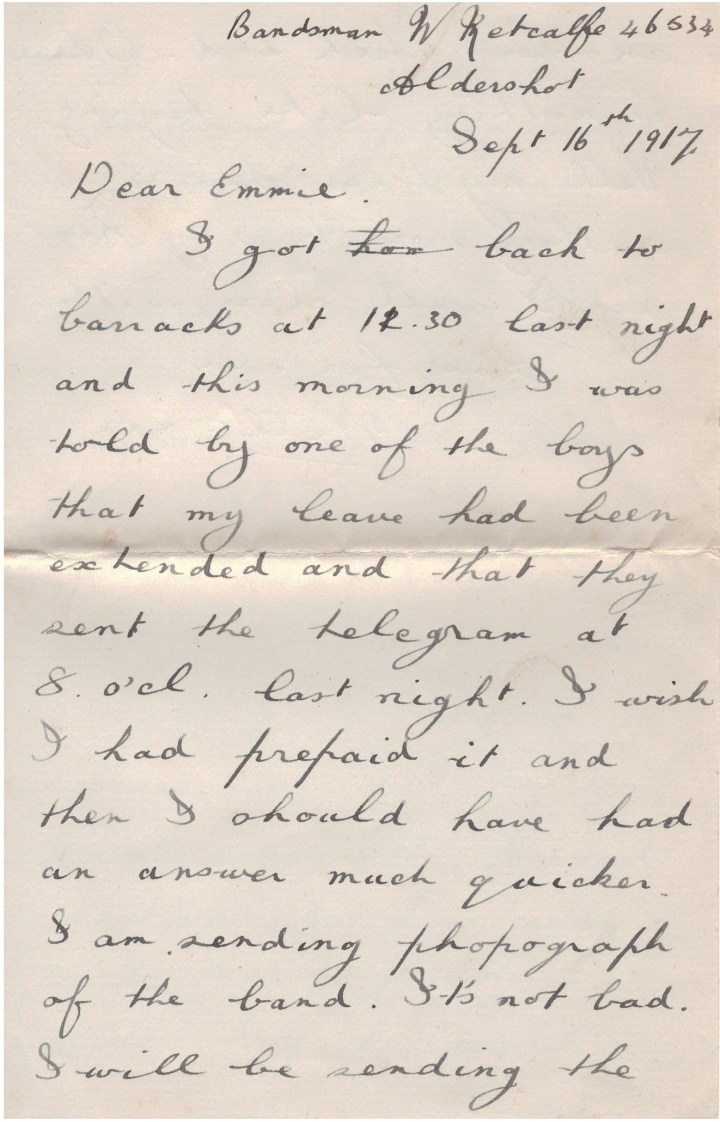 Bandsman W Metcalfe 46534
Aldershot
Sept 16th 1917
Dear Emmie.
I got back to
barracks at 12.30 last night
and this morning I was
told by one of the boys
that my leave had been
extended and that they
sent the telegram at
8. o'cl. last night. I wish
I had prepaid it and
then I should have had
an answer much quicker.
I am sending phopograph
of the band. It's not bad.
I will be sending the